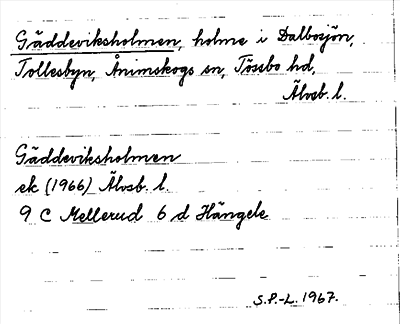 Gäddeviksholmen, holme i Dalbosjön,
Tollesbyn, Ånimskogs sn, Tössbo hd,
Älvsb. l.
Gäddeviksholmen
ek (1966) Älvsb. l.
9 C Mellerud 6 d Hängele
S.P.-L. 1967.